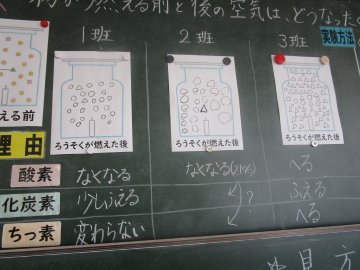 ろうそくが燃える前と後の空気は、どうなった
実験方法
1班 2班 3班
える前
ろうそくが燃えた後 ろうそくが燃えた後 ろうそくが燃えた後
理由
酸素 なくなる なくなる へる
化炭素 少しふえる ? ふえる
ちっ素 変わらない ? へる
見方